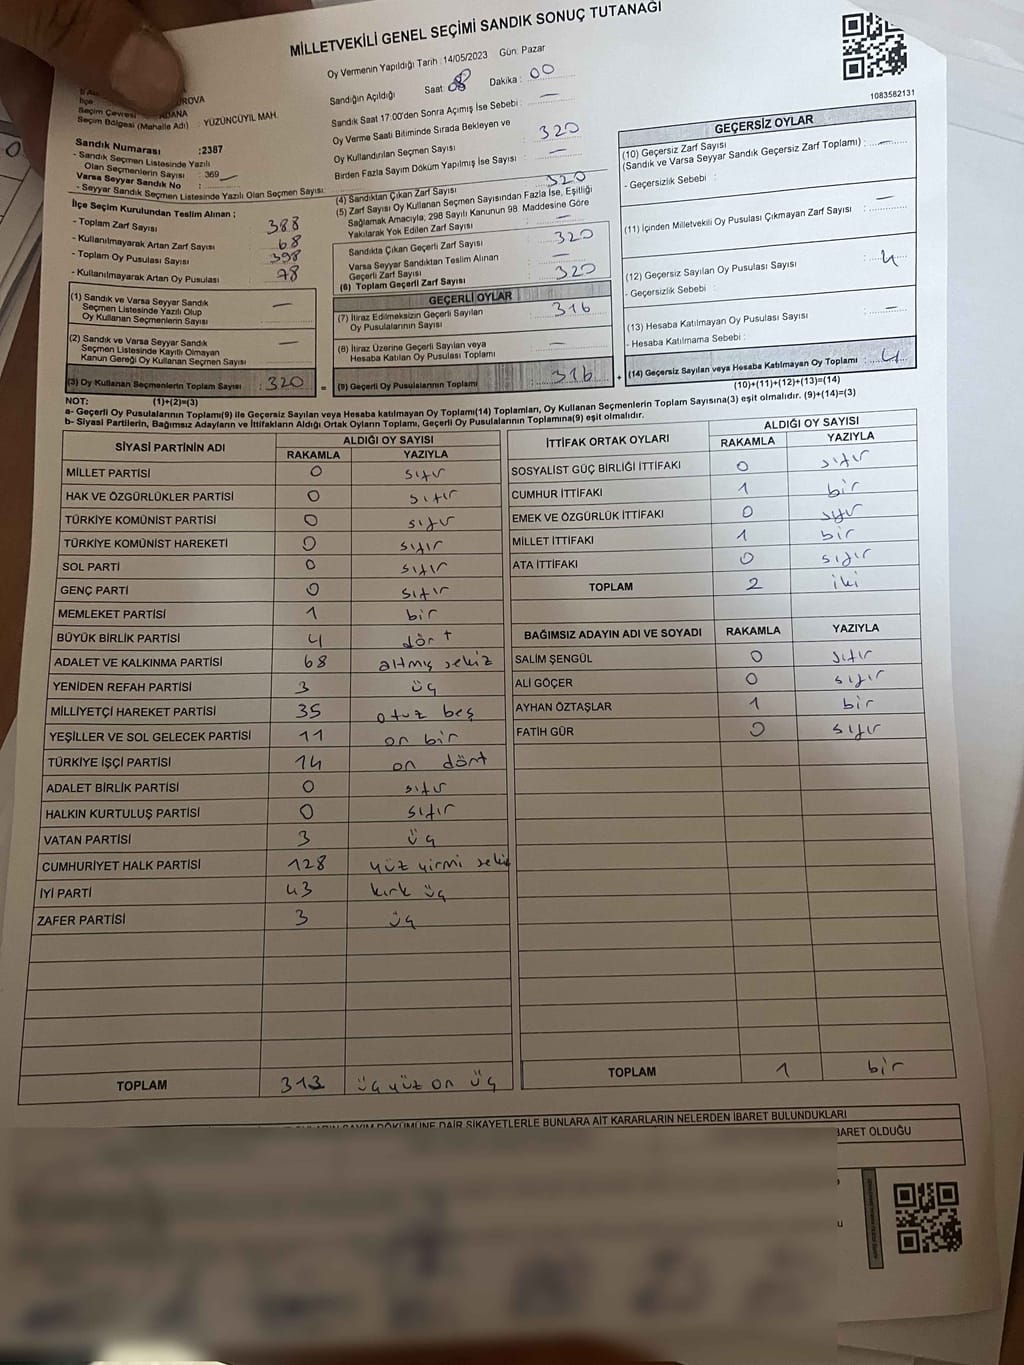 MİLLETVEKİLİ GENEL SEÇİMİ SANDIK SONUÇ TUTANAĞI
Oy Vermenin Yapıldığı Tarih : 14/05/2023 Gün: Pazar
Sandığın Açıldığı Saat: 08 Dakika : 00
Sandık Saat 17:00'den Sonra Açımış İse Sebebi : —
Oy Verme Saati Bitiminde Sırada Bekleyen ve
Oy Kullandırılan Seçmen Sayısı : 320
Birden Fazla Sayım Döküm Yapılmış İse Sayısı : —
İlçe
UROVA
Seçim Çevresi : ADANA
Seçim Bölgesi (Mahalle Adı) : YÜZÜNCÜYIL MAH.
Sandık Numarası :2387
- Sandık Seçmen Listesinde Yazılı
Olan Seçmenlerin Sayısı : 369
Varsa Seyyar Sandık No : —
- Seyyar Sandık Seçmen Listesinde Yazılı Olan Seçmen Sayısı:
İlçe Seçim Kurulundan Teslim Alınan ;
- Toplam Zarf Sayısı 388
- Kullanılmayarak Artan Zarf Sayısı 68
- Toplam Oy Pusulası Sayısı 398
- Kullanılmayarak Artan Oy Pusulası 78
(1) Sandık ve Varsa Seyyar Sandık
Seçmen Listesinde Yazılı Olup
Oy Kullanan Seçmenlerin Sayısı —
(2) Sandık ve Varsa Seyyar Sandık
Seçmen Listesinde Kayıtlı Olmayan
Kanun Gereği Oy Kullanan Seçmen Sayısı —
(3) Oy Kullanan Seçmenlerin Toplam Sayısı : 320 =
(1)+(2)=(3)
(4) Sandıktan Çıkan Zarf Sayısı 320
(5) Zarf Sayısı Oy Kullanan Seçmen Sayısından Fazla İse, Eşitliği
Sağlamak Amacıyla, 298 Sayılı Kanunun 98. Maddesine Göre
Yakılarak Yok Edilen Zarf Sayısı —
Sandıkta Çıkan Geçerli Zarf Sayısı 320
Varsa Seyyar Sandıktan Teslim Alınan
Geçerli Zarf Sayısı —
(6) Toplam Geçerli Zarf Sayısı 320
GEÇERLİ OYLAR
(7) İtiraz Edilmeksizin Geçerli Sayılan
Oy Pusulalarının Sayısı : 316
(8) İtiraz Üzerine Geçerli Sayılan veya
Hesaba Katılan Oy Pusulası Toplamı : —
(9) Geçerli Oy Pusulalarının Toplamı : 316 +
1083582131
GEÇERSİZ OYLAR
(10) Geçersiz Zarf Sayısı
(Sandık ve Varsa Seyyar Sandık Geçersiz Zarf Toplamı) : —
- Geçersizlik Sebebi : —
(11) İçinden Milletvekili Oy Pusulası Çıkmayan Zarf Sayısı : —
(12) Geçersiz Sayılan Oy Pusulası Sayısı : 4
- Geçersizlik Sebebi :
(13) Hesaba Katılmayan Oy Pusulası Sayısı : —
- Hesaba Katılmama Sebebi :
(14) Geçersiz Sayılan veya Hesaba Katılmayan Oy Toplamı : 4
(10)+(11)+(12)+(13)=(14)
NOT:
a- Geçerli Oy Pusulalarının Toplamı(9) ile Geçersiz Sayılan veya Hesaba katılmayan Oy Toplamı(14) Toplamları, Oy Kullanan Seçmenlerin Toplam Sayısına(3) eşit olmalıdır. (9)+(14)=(3)
b- Siyasi Partilerin, Bağımsız Adayların ve İttifakların Aldığı Ortak Oyların Toplamı, Geçerli Oy Pusulalarının Toplamına(9) eşit olmalıdır.
SİYASİ PARTİNİN ADI ALDIĞI OY SAYISI
RAKAMLA YAZIYLA
MİLLET PARTİSİ 0 sıfır
HAK VE ÖZGÜRLÜKLER PARTİSİ 0 sıfır
TÜRKİYE KOMÜNİST PARTİSİ 0 sıfır
TÜRKİYE KOMÜNİST HAREKETİ 0 sıfır
SOL PARTİ 0 sıfır
GENÇ PARTİ 0 sıfır
MEMLEKET PARTİSİ 1 bir
BÜYÜK BİRLİK PARTİSİ 4 dört
ADALET VE KALKINMA PARTİSİ 68 altmış sekiz
YENİDEN REFAH PARTİSİ 3 üç
MİLLİYETÇİ HAREKET PARTİSİ 35 otuz beş
YEŞİLLER VE SOL GELECEK PARTİSİ 11 on bir
TÜRKİYE İŞÇİ PARTİSİ 14 on dört
ADALET BİRLİK PARTİSİ 0 sıfır
HALKIN KURTULUŞ PARTİSİ 0 sıfır
VATAN PARTİSİ 3 üç
CUMHURİYET HALK PARTİSİ 128 yüz yirmi sekiz
İYİ PARTİ 43 kırk üç
ZAFER PARTİSİ 3 üç
TOPLAM 313 üç yüz on üç
İTTİFAK ORTAK OYLARI ALDIĞI OY SAYISI
RAKAMLA YAZIYLA
SOSYALİST GÜÇ BİRLİĞİ İTTİFAKI 0 sıfır
CUMHUR İTTİFAKI 1 bir
EMEK VE ÖZGÜRLÜK İTTİFAKI 0 sıfır
MİLLET İTTİFAKI 1 bir
ATA İTTİFAKI 0 sıfır
TOPLAM 2 iki
BAĞIMSIZ ADAYIN ADI VE SOYADI RAKAMLA YAZIYLA
SALİM ŞENGÜL 0 sıfır
ALİ GÖÇER 0 sıfır
AYHAN ÖZTAŞLAR 1 bir
FATİH GÜR 0 sıfır
TOPLAM 1 bir
DÖKÜMÜNE DAİR ŞİKAYETLERLE BUNLARA AİT KARARLARIN NELERDEN İBARET BULUNDUKLARI
BARET OLDUĞU